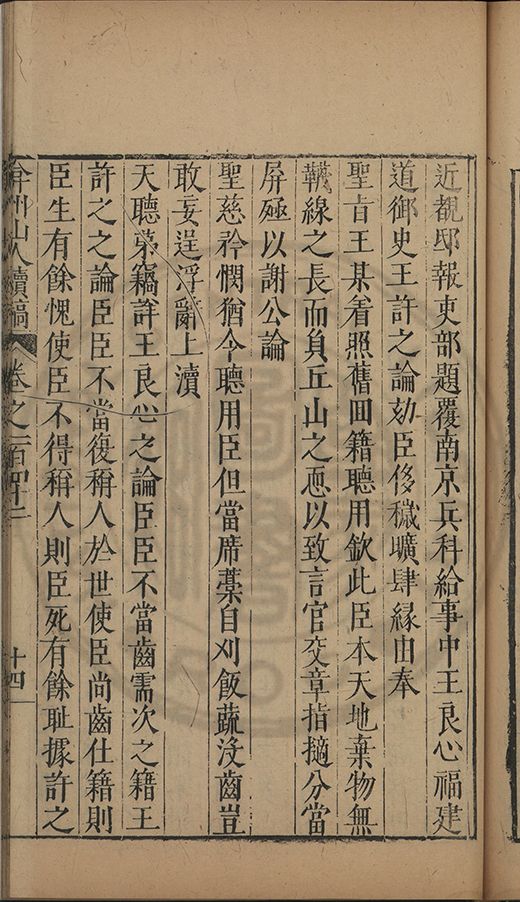 近覩邸報吏部題覆南京兵科給事中王良心福建
道御史王許之論劾臣侈穢曠肆緣由奉
聖旨王某着照舊回籍聽用欽此臣本天地棄物無
韈線之長而負丘山之恧以致言官交章指擿分當
屏殛以謝公論
聖慈矜憫猶令聽用臣但當席藁自刈飯蔬没齒豈
敢妄逞浮辭上瀆
天聽第竊詳王良心之論臣臣不當齒需次之籍王
許之之論臣臣不當復稱人於世使臣尚齒仕籍則
臣生有餘愧使臣不得稱人則臣死有餘恥據許之
弇州山人續稿 卷之一百四十二 十四